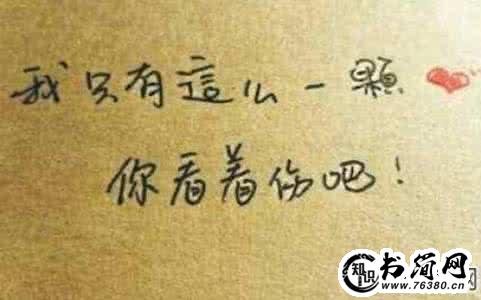 我只有這么一顆
你看着伤吧！
知识
书简网
www.76380.cn
网